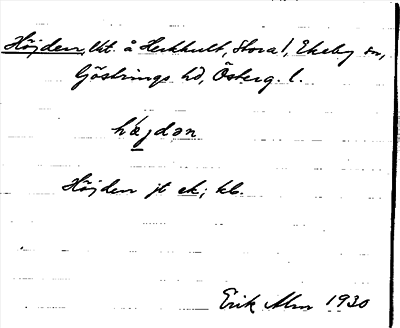 Höjden, lht. å Herkhult, Stora!, Ekeby sn,
Göstrings hd, Österg. l.
hœjdən
Höjden jt ek; kl.
Erik Alm 1930